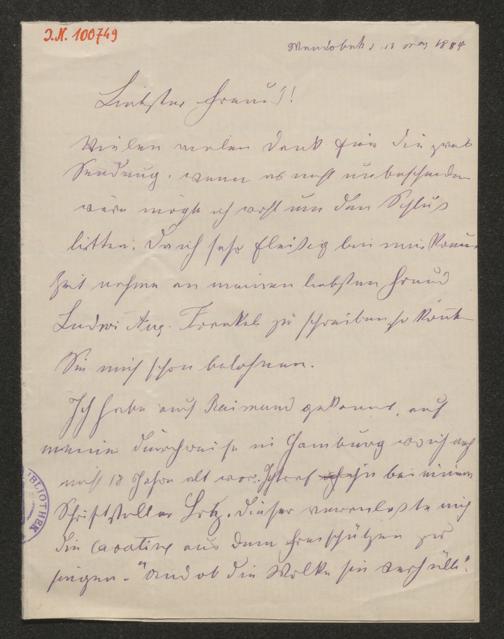 I.N. 100749
Wandsbek, d. 13 May 1884
Liebster Freund!
Vielen vielen Dank für die
Sendung, wenn es nicht unbescheiden
wäre möchte ich wohl um den Schluß
bitten. Da ich sehr fleißig bei
Zeit nehme an meinen liebsten Freund
Ludwi Aug. Frankel zu schreiben so
Sie mich schon belohnen.
Ich habe auch Raimund gekannt, auf
meine Durchreise in Hamburg wo ich
noch 18 Jahre alt war. Ich traf ihn bei einem
Schriftsteller Lotz. Dieser veranlaßte mich
die Cavatine aus dem Freischützen zu
singen. "Und ob die Wolke sie verhülle".
BIBLIOTHEK